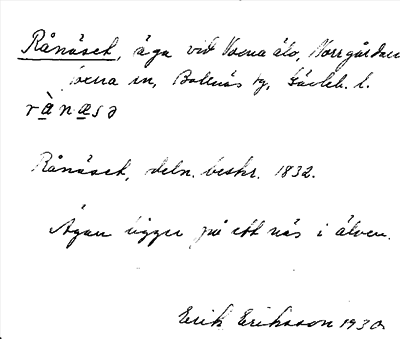 Rånäset, äga vid Voxna älv, Norrgården
Voxna sn, Bollnäs tg, Gävleb. l.
rånæsə
Rånäset, deln. beskr. 1832.
Ägan ligger på ett näs i älven.
Erik Eriksson 1930